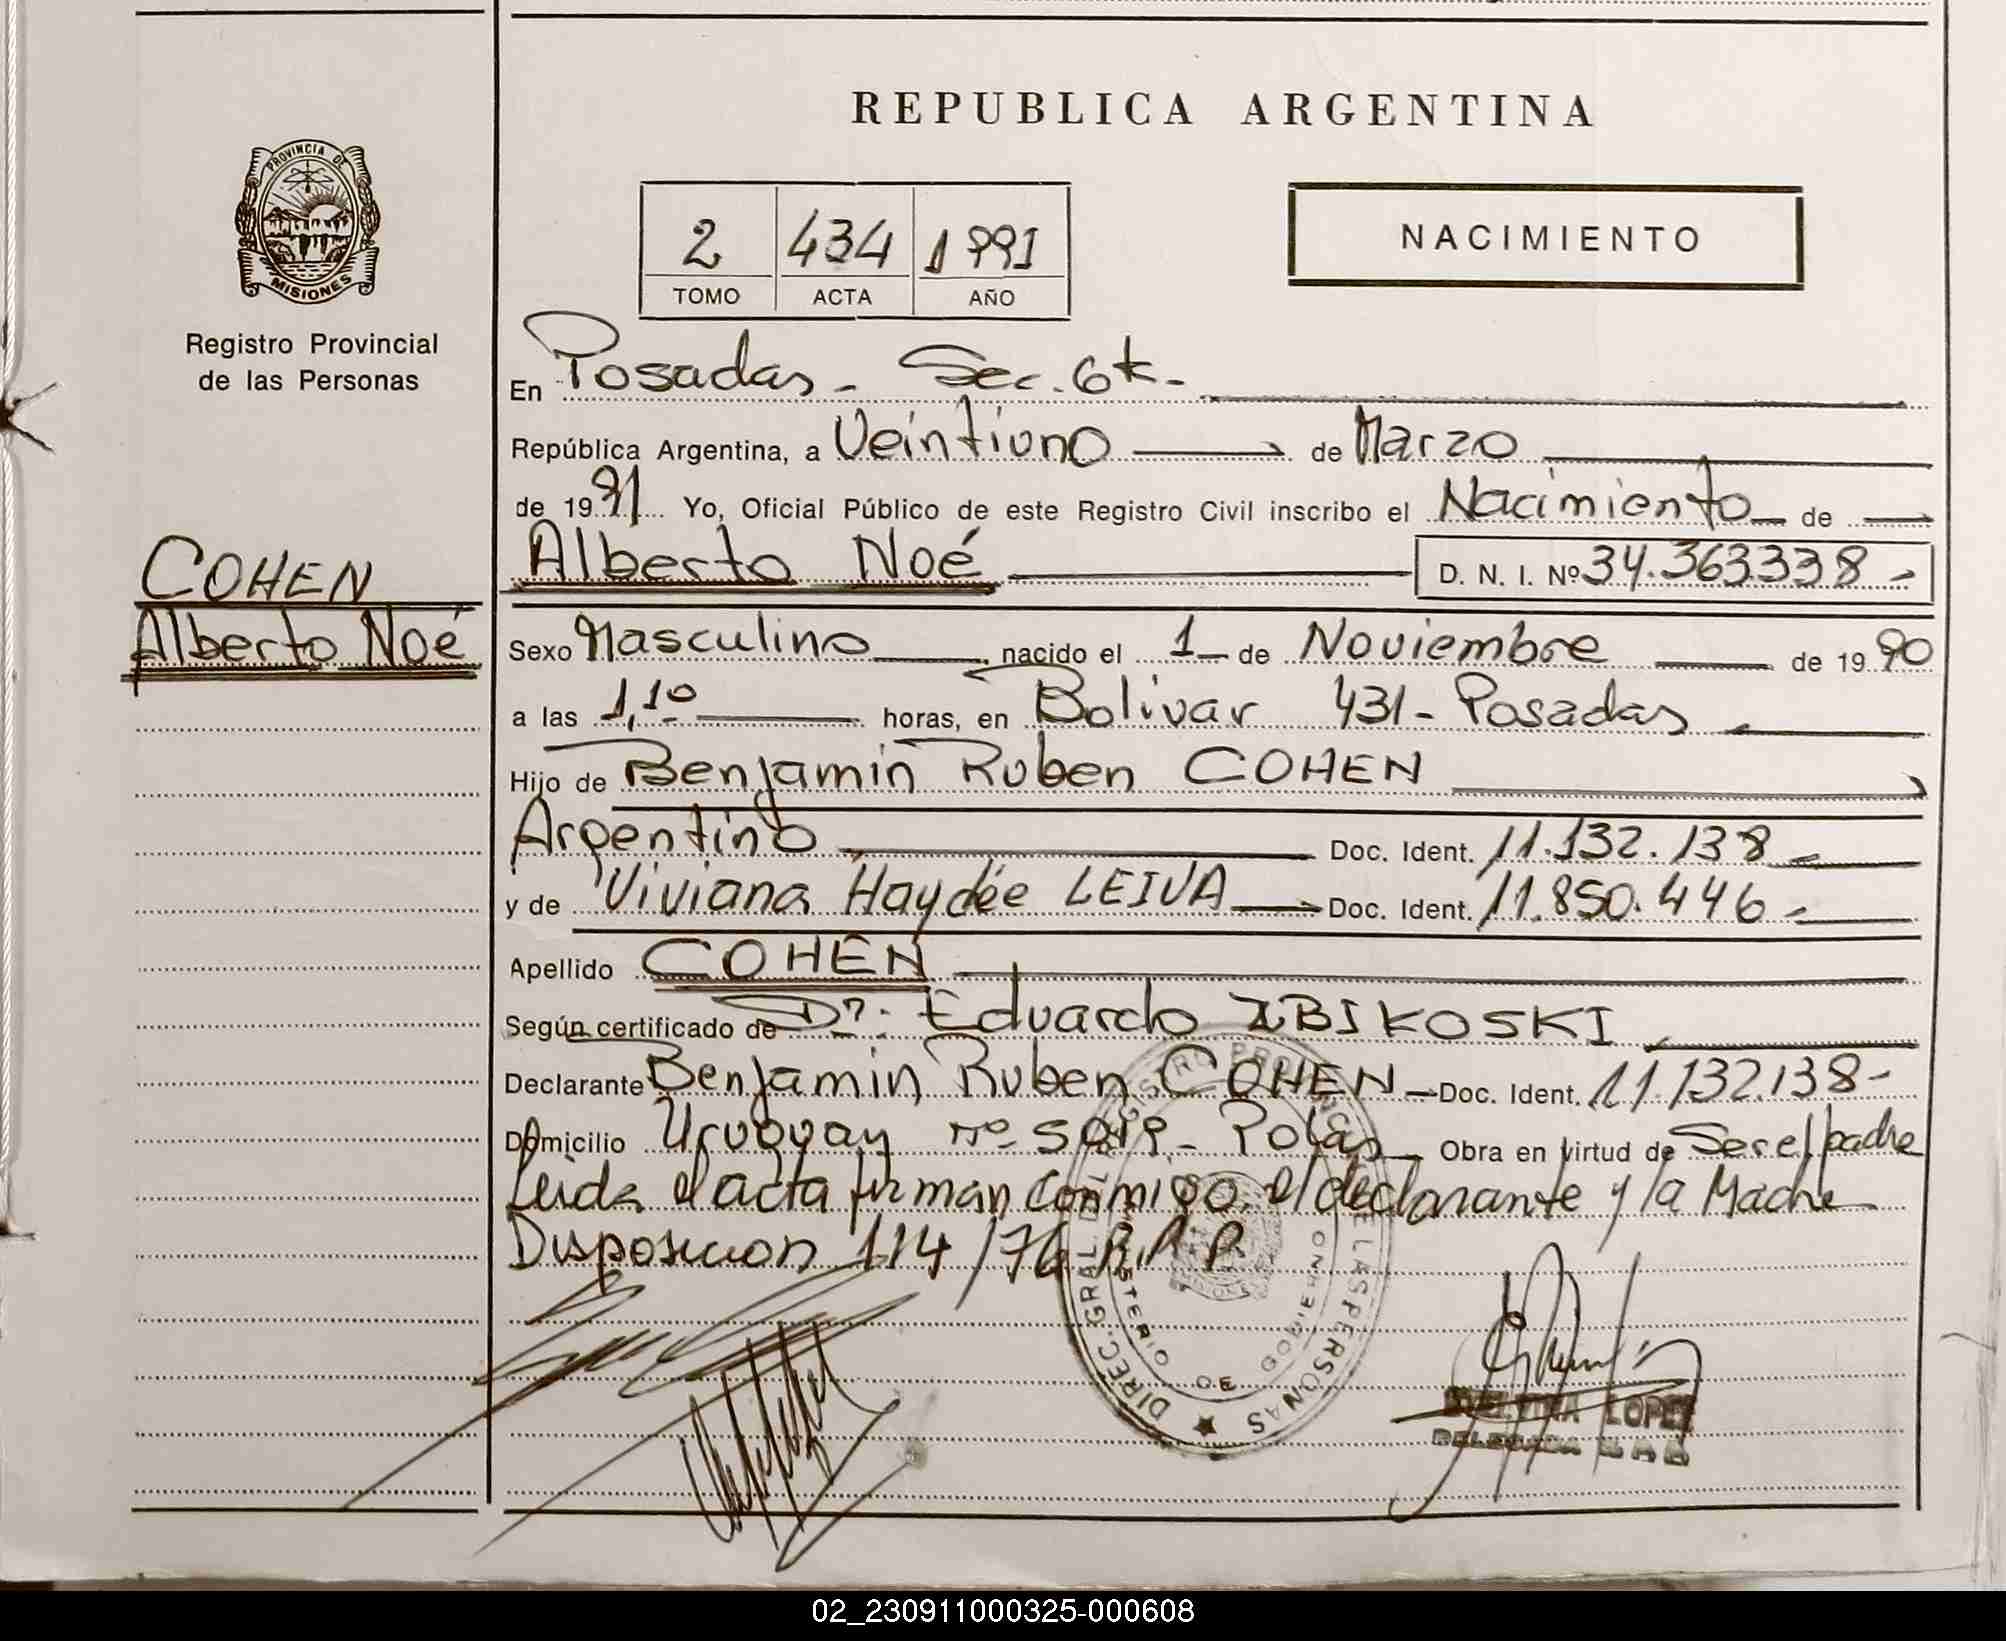 REPUBLICA ARGENTINA
PROVINCIA DE
MISIONES
Registro Provincial
de las Personas
2 434 1991
TOMO ACTA AÑO
NACIMIENTO
En Posadas - Sec. 6ta -
República Argentina, a Veintiuno de Marzo
de 1991 Yo, Oficial Público de este Registro Civil inscribo el Nacimiento de
Alberto Noé D. N. I. Nº 34.363338 -
COHEN
Alberto Noé
Sexo Masculino nacido el 1 de Noviembre de 1990
a las 1,10 horas, en Bolivar 431 - Posadas
Hijo de Benjamin Ruben COHEN
Argentino Doc. Ident. 11.132.138 -
y de Viviana Haydée LEIVA Doc. Ident. 11.850.446 -
Apellido COHEN
Según certificado de Dr. Eduardo ZBIKOSKI
Declarante Benjamin Ruben COHEN - Doc. Ident. 11.132.138 -
Domicilio Uruguay nº - Pdas Obra en virtud de Ser el padre
Leida el acta firman conmigo, el declarante y la Madre
Disposicion 114/76 R.P.P.
DIREC. GRAL. DEL REGISTRO PROVINCIAL DE LAS PERSONAS
MINISTERIO DE GOBIERNO
LOPEZ
DELEGADA
02_230911000325-000608